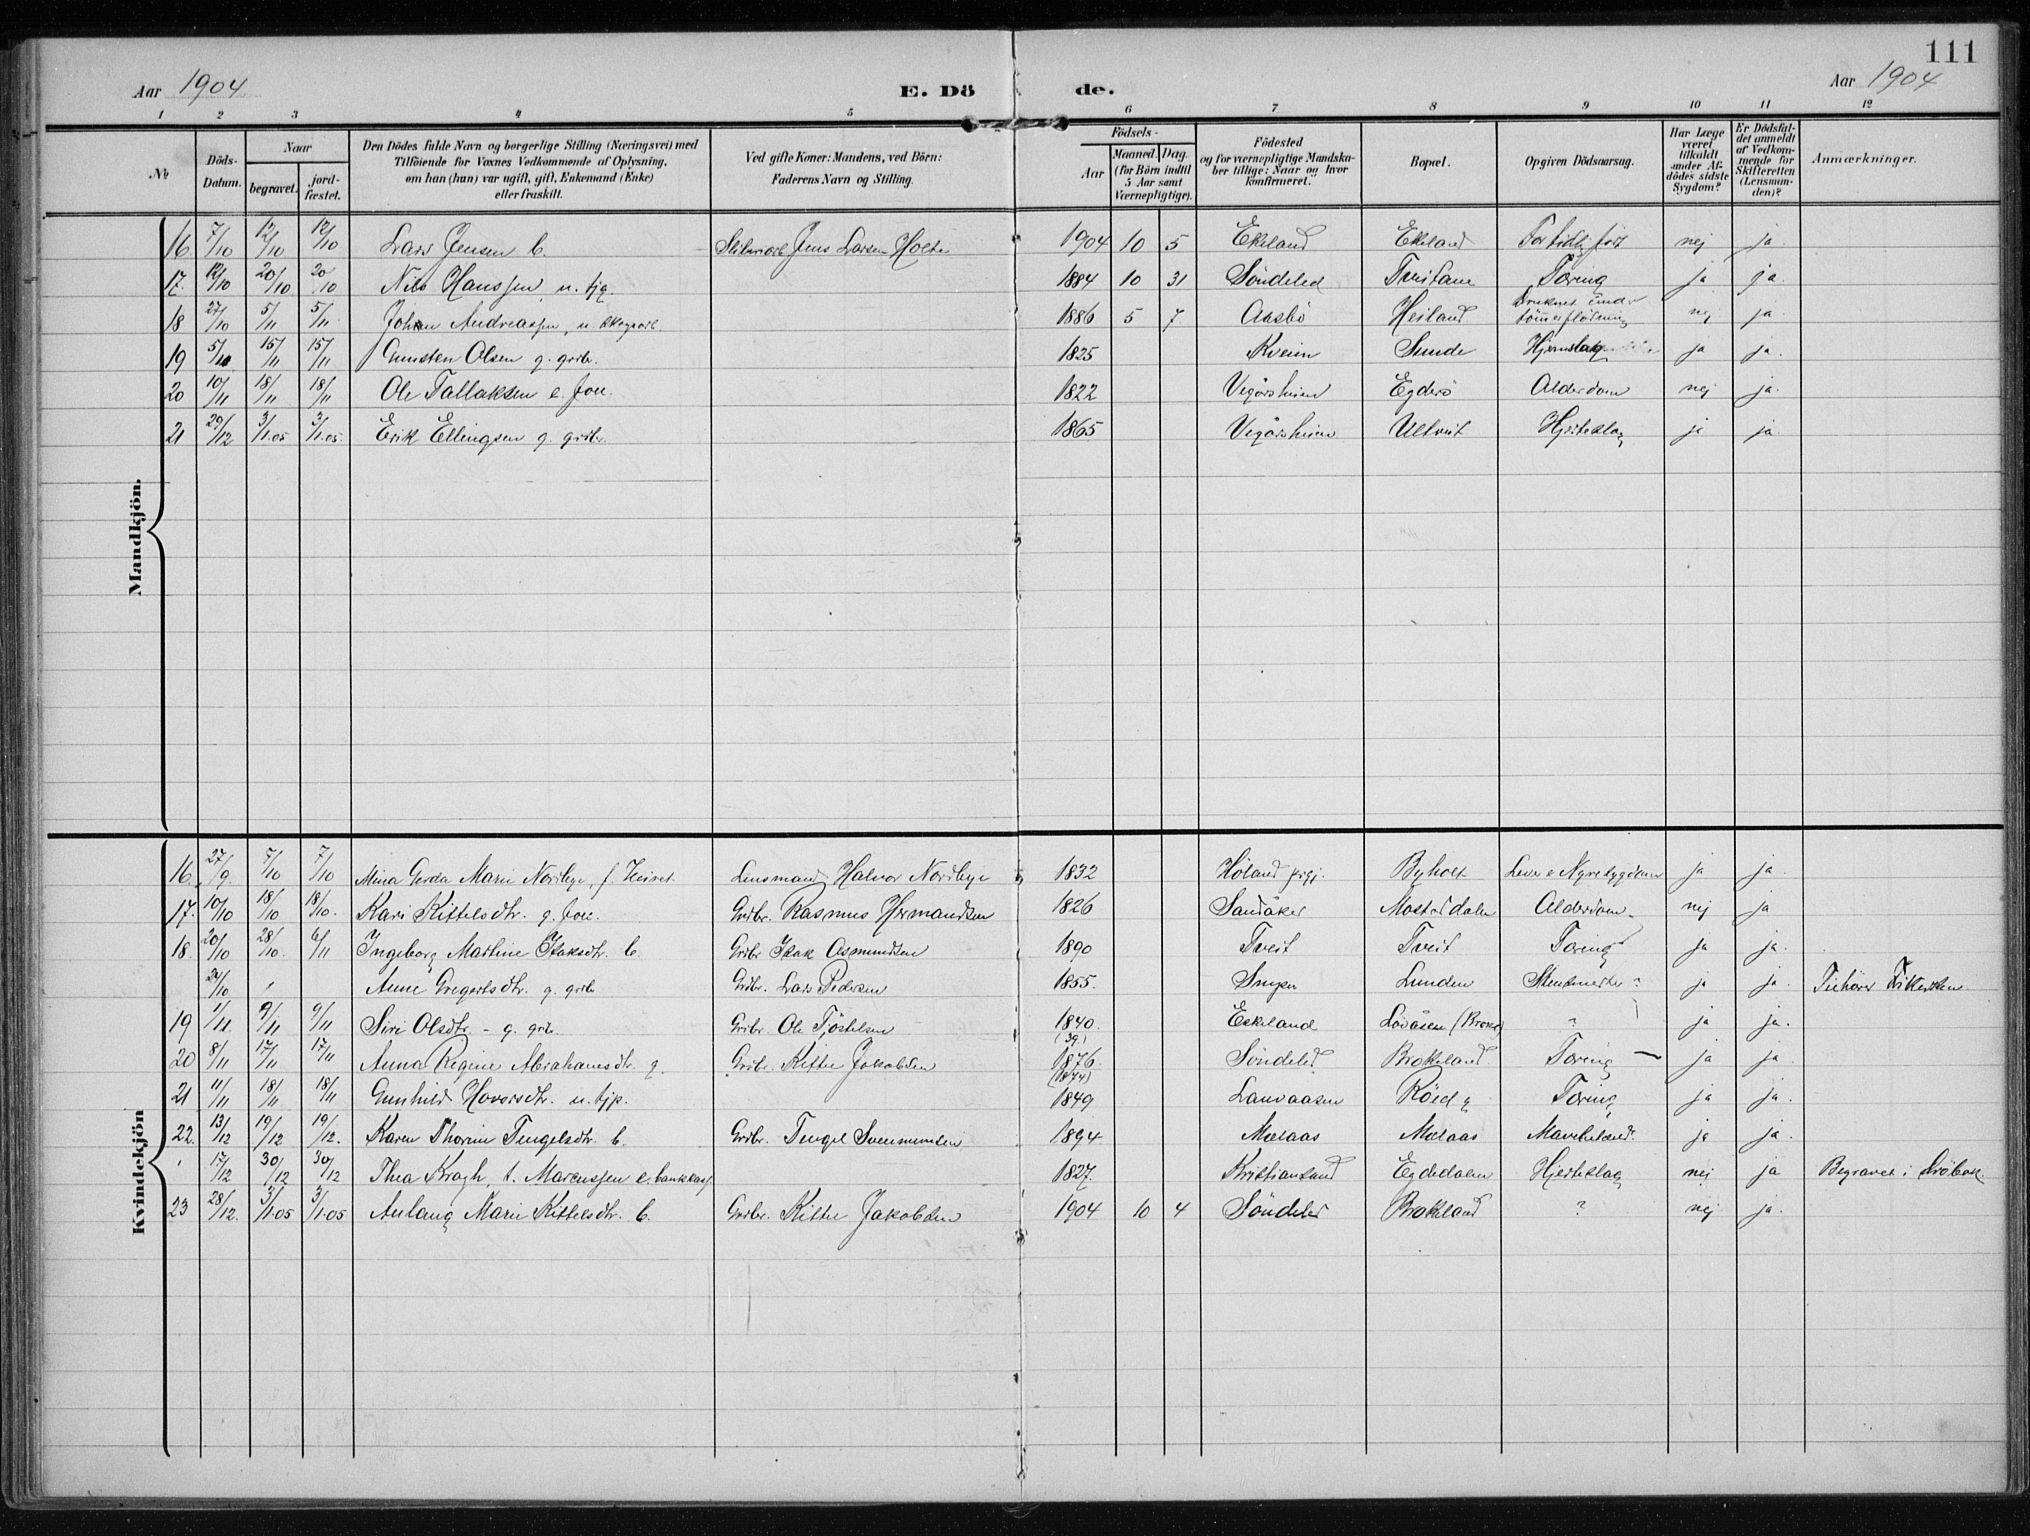 111
Aar 1904 E. Dö de. Aar 1904
1 2 3 4 5 6 7 8 9 10 11 12
No
Döds-Datum.
Naar
begravet.
jord-fæstet.
Den Dödes fulde Navn og borgerlige Stilling (Næringsvei) med
Tilföiende for Voxnes Vedkommende af Oplysning,
om han (hun) var ugift, gift, Enkemand (Enke)
eller fraskilt.
Ved gifte Koner: Mandens, ved Börn:
Faderens Navn og Stilling.
Födsels-
Aar
Maaned. Dag.
(for Börn indtil
5 Aar samt
Værnepligtige).
Födested
og for værnepligtige Mandska-
ber tillige: Naar og hvor
konfirmeret.
Bopæl.
Opgiven Dödsaarsag.
Har Læge
været
tilkaldt
under Af-
dödes sidste
Sygdom?
Er Dödsfal-
det anmeldt
af Vedkom-
mende for
Skifteretten
(Lensman-
den)?
Anmærkninger.
Mandkjön.
16 7/10 12/10 12/10 Lars Jensen b. Jens Larsen Holte 1904 10 5 Ekeland Ekeland For tidlig født nej ja
17. 12/10 20/10 20/10 Nils Hanssen u. tjg. 1884 10 31 Söndeled Tveitane Tæring ja ja.
18 27/10 5/11 5/11 Johan Andreassen, u. skogsarb. 1886 5 7 Aasbö Heiland Druknet under tömmerflödning nej ja.
19 5/11 15/11 15/11 Gunsten Olsen g. grdb. 1825 Kveim Sunde Hjerneslag ja ja.
20 10/11 18/11 18/11 Ole Tallaksen e. fou. 1822 Vegårsheien Egdesö Alderdom nej ja.
21 29/12 3/1.05 3/1.05. Erik Ellingsen g. grdbr. 1865 Vegårsheien Ulltveit Hjerteslag ja ja.
Kvindekjön
16. 27/9. 7/10 7/10 Mina Gerda Marie Nordbye, f. Lensmand Halvor Nordbye 1832 Höland prgj. Byholt Lever e Nyresygdom ja ja.
17. 10/10 18/10 18/10. Kari Kittelsdtr. g. fou. Grdbr. Rasmus Hermandsen 1826 Sandåker Mostaddalen Alderdom. nej ja
18. 20/10 28/10. 6/11 Ingeborg Martine Isaksdtr. b. Grdbr Isak Asmundsen 1890 Tveit Tveit Tæring ja ja.
24/10 Anne Gregertsdtr. g. grdb Grdbr. Lars Pedersen 1855. Lunden ? ja ja.
19 1/11. 9/11 9/11 Siri Olsdtr. - g. grdb. Grdbr. Ole Tjöstelsen 1840. (39.) Eskeland Lövåsen ? ja ja.
20 8/11 17/11 17/11 Anna Regine Abrahamsdtr. g. Grdbr. Kittel Jakobsen 1876. (1874) Söndeled Brokeland Tæring ja ja.
21 11/11 18/11 18/11 Gunhild Hovorsdtr. u. tjp. 1849 Lauvaasen Röed Tæring ja ja.
22. 13/12 19/12 19/12. Karen Thorine Tengelsdtr. b. Grdbr. Tengel Svenumsen 1894 Mælaas Mælaas ja ja.
17/12 30/12 30/12 Thea Kragh, f. Marcussen e. bankkass. 1827. Kristiansand Egdedalen Hjerteslag nej ja Begravet i Dröbak.
23 28/12. 3/1.05 3/1.05 Aslaug Marie Kittelsdtr. b. Grdbr. Kittel Jakobsen 1904 10 4 Söndeled Brokeland ? nej ja.